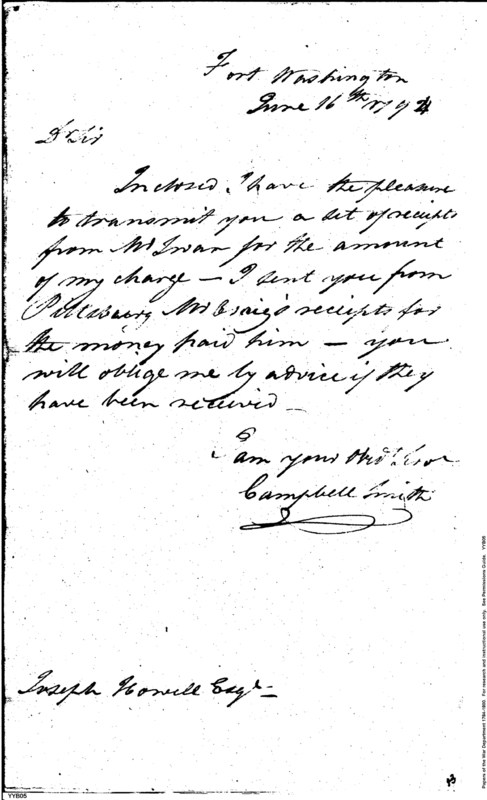 Fort Washington
June 16th 1794
Dr Sir
Inclosed I have the pleasure
to transmit you a set of receipts
from Mr Swan for the amount
of my charge — I sent you from
Pittsburg Mr Craig's receipts for
the money paid him — you
will oblige me by advice if they
have been received —
I am your Obdt. Ser
Campbell Smith
Joseph Howell Esqr. —
YYB05
Papers of the War Department 1784-1800. For research and instructional use only. See Permissions Guide. YYB05